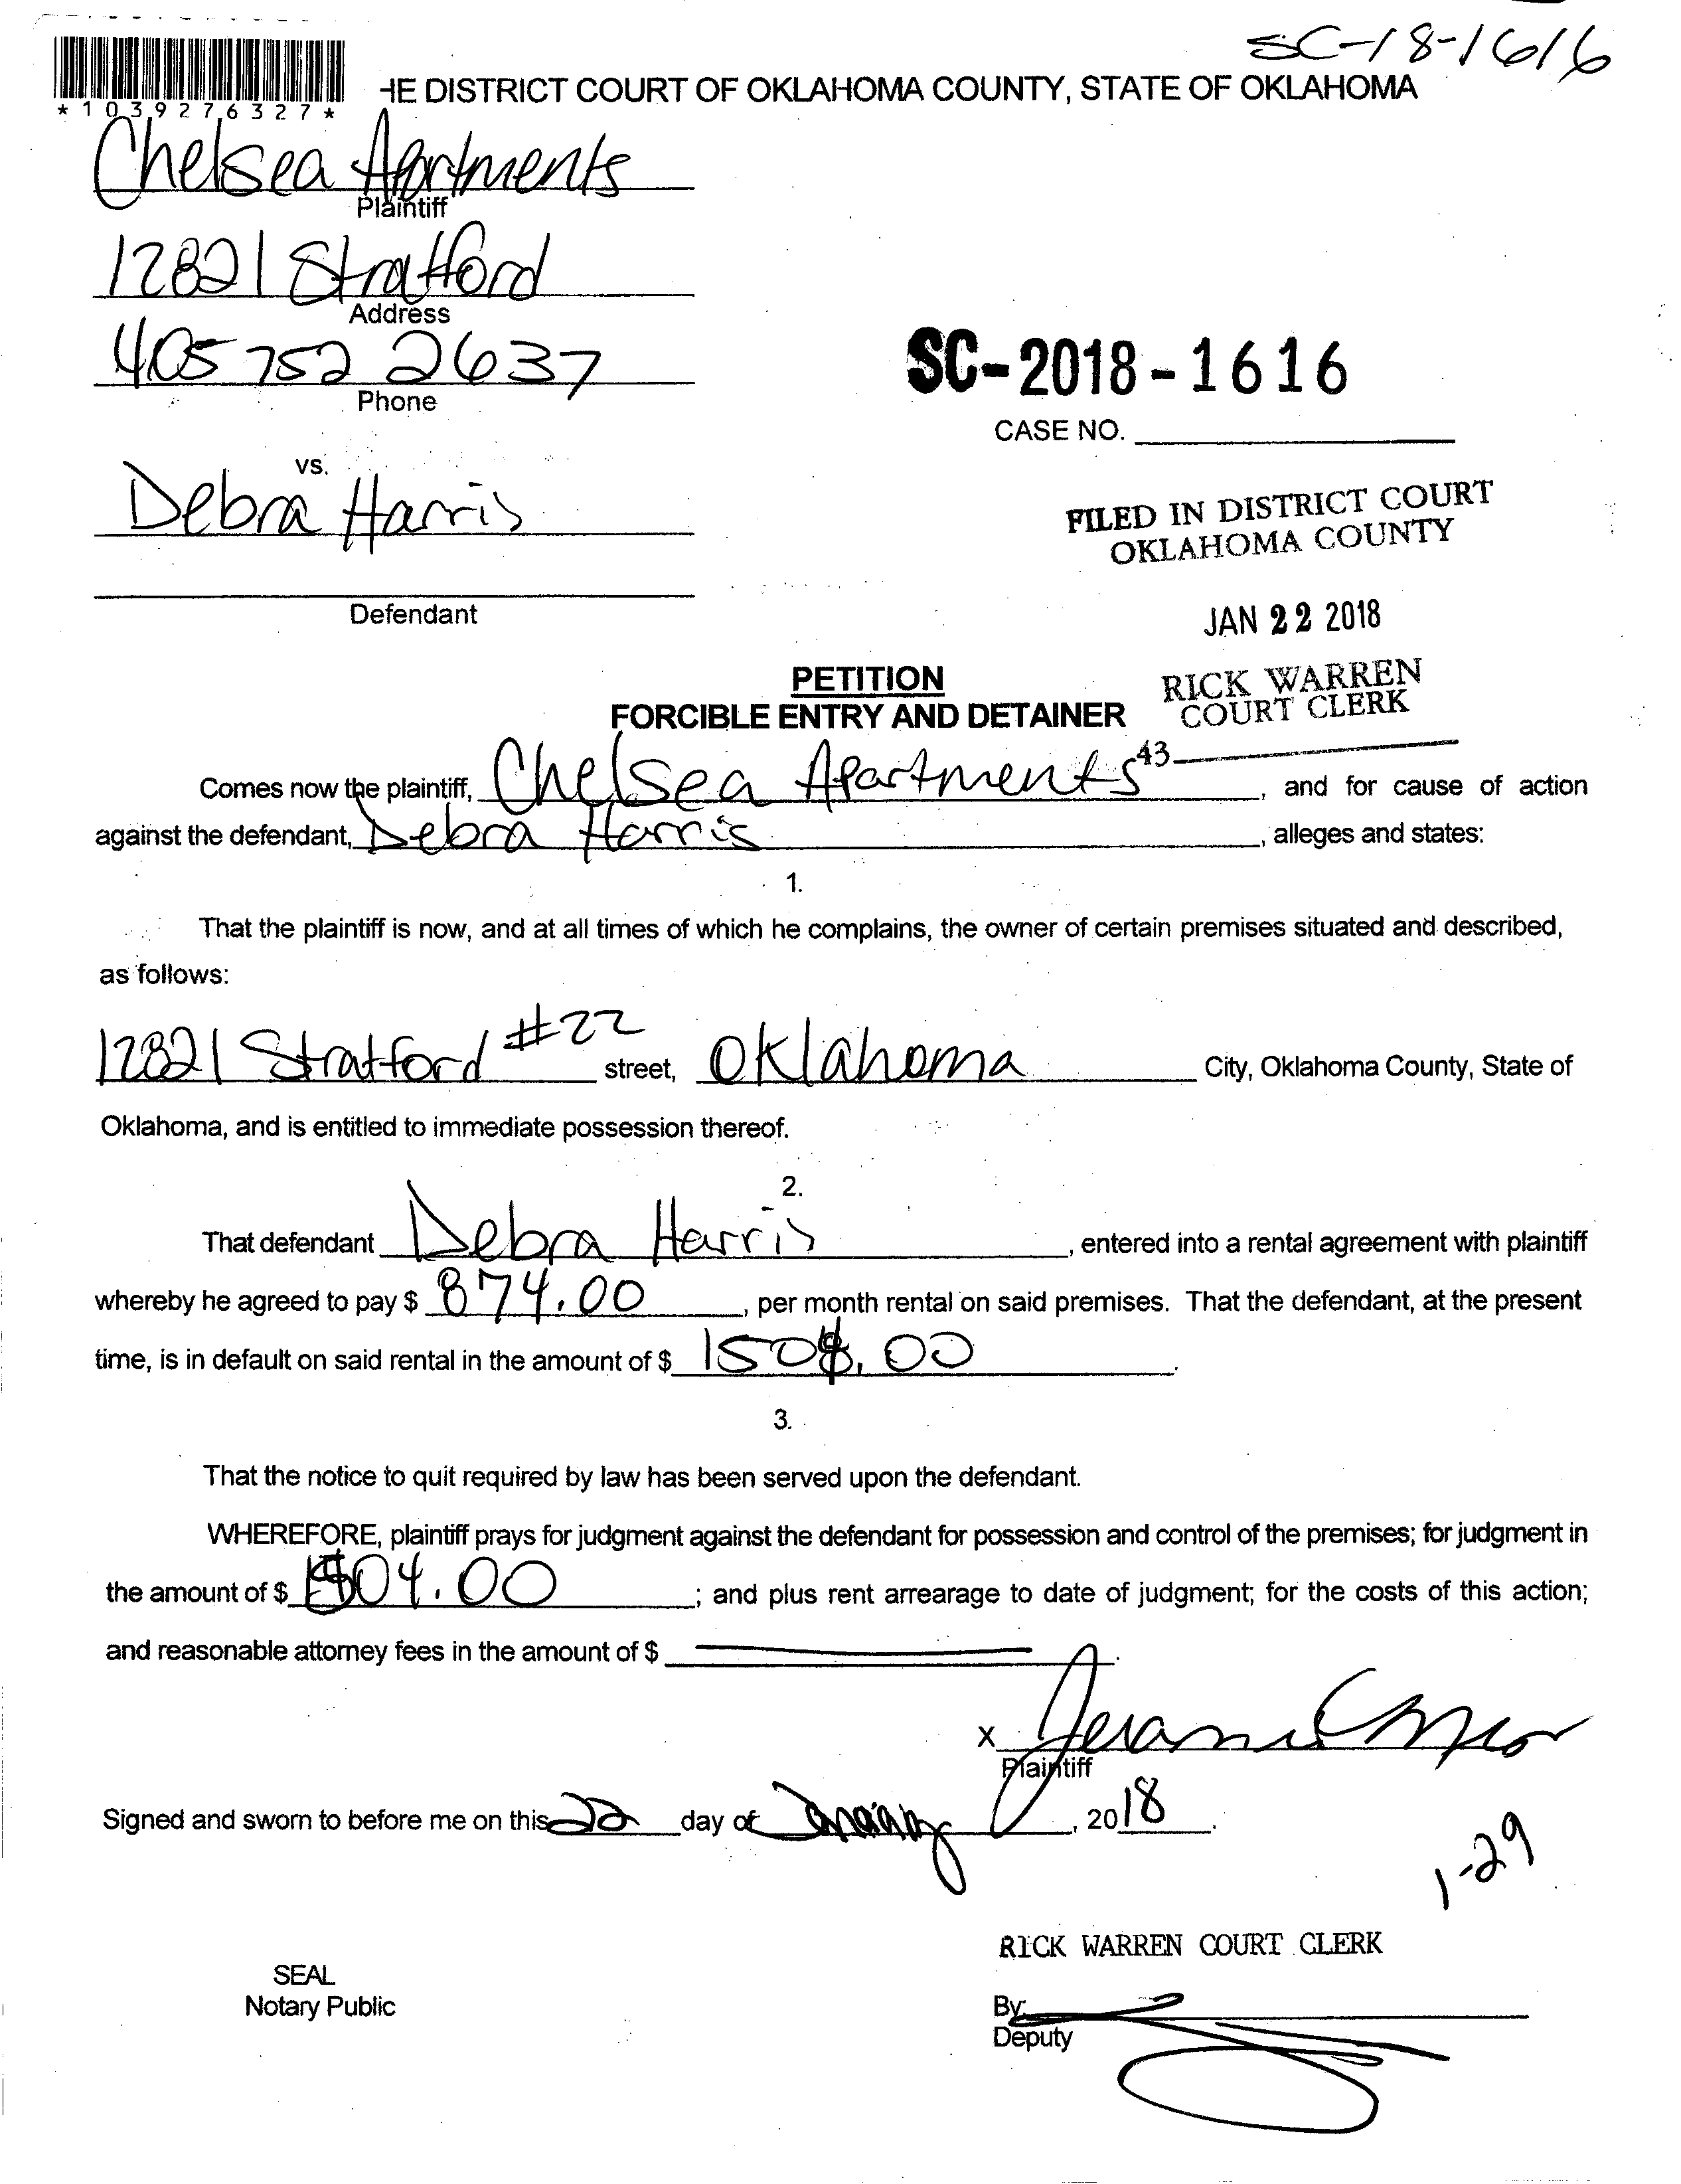 SC-18-1616
HE DISTRICT COURT OF OKLAHOMA COUNTY, STATE OF OKLAHOMA
*1039276327*
Chelsea Apartments
Plaintiff
12821 Stratford
Address
405 752 2637
Phone
SC-2018-1616
CASE NO.
vs.
Debra Harris
FILED IN DISTRICT COURT
OKLAHOMA COUNTY
Defendant
JAN 22 2018
PETITION
FORCIBLE ENTRY AND DETAINER
RICK WARREN
COURT CLERK
43
Comes now the plaintiff, Chelsea Apartments, and for cause of action
against the defendant, Debra Harris, alleges and states:
1.
That the plaintiff is now, and at all times of which he complains, the owner of certain premises situated and described,
as follows:
12821 Stratford #22 street, Oklahoma City, Oklahoma County, State of
Oklahoma, and is entitled to immediate possession thereof.
2.
That defendant Debra Harris, entered into a rental agreement with plaintiff
whereby he agreed to pay $ 874.00, per month rental on said premises. That the defendant, at the present
time, is in default on said rental in the amount of $ .
3.
That the notice to quit required by law has been served upon the defendant.
WHEREFORE, plaintiff prays for judgment against the defendant for possession and control of the premises; for judgment in
the amount of $ 1504.00; and plus rent arrearage to date of judgment; for the costs of this action;
and reasonable attorney fees in the amount of $
X
Plaintiff
Signed and sworn to before me on this 22 day of January, 2018.
1-29
RICK WARREN COURT CLERK
SEAL
Notary Public
By:
Deputy